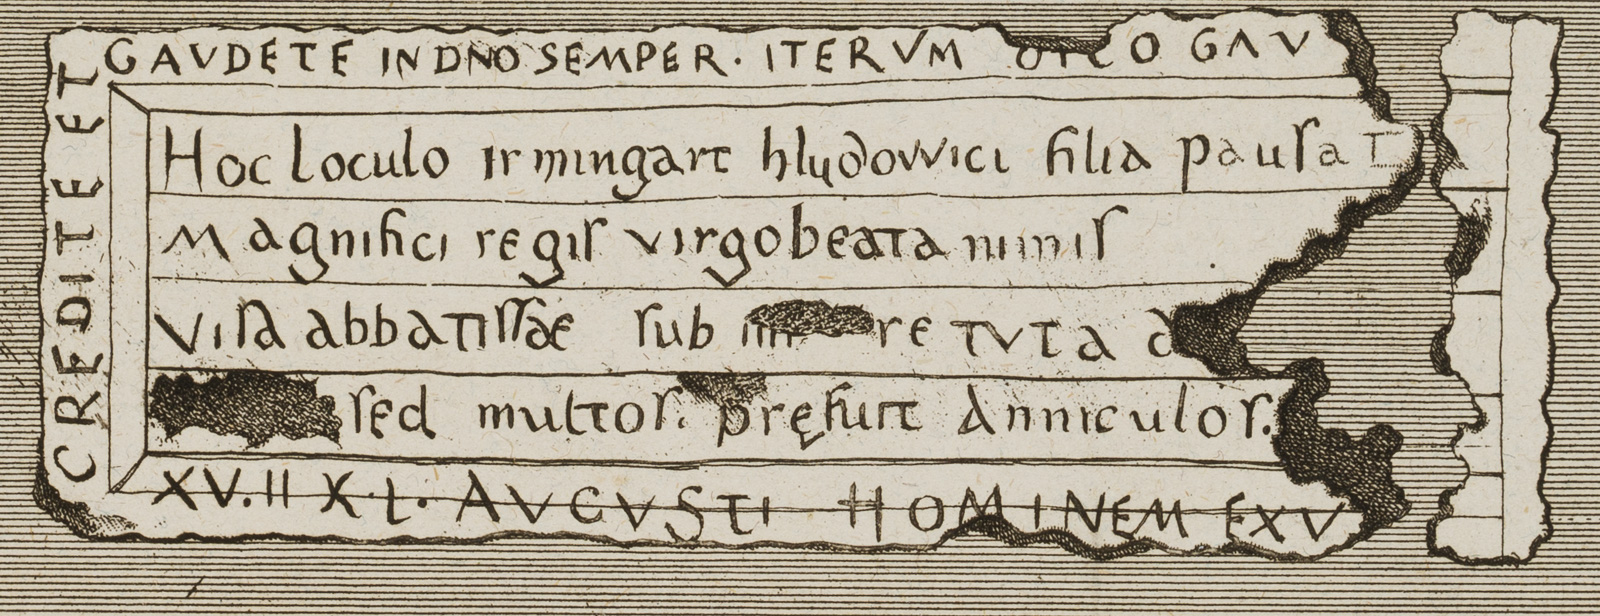 GAVDETE IN DNO SEMPER. ITERVM O GAV
CREDITE ET
Hoc loculo irmingart hludowici filia pausat
Magnifici regis virgo beata nimis
Visa abbatissae sub re tuta
sed multos. pręfuit anniculos.
XV.II K.L. AVGVSTI HOMINEM EXV